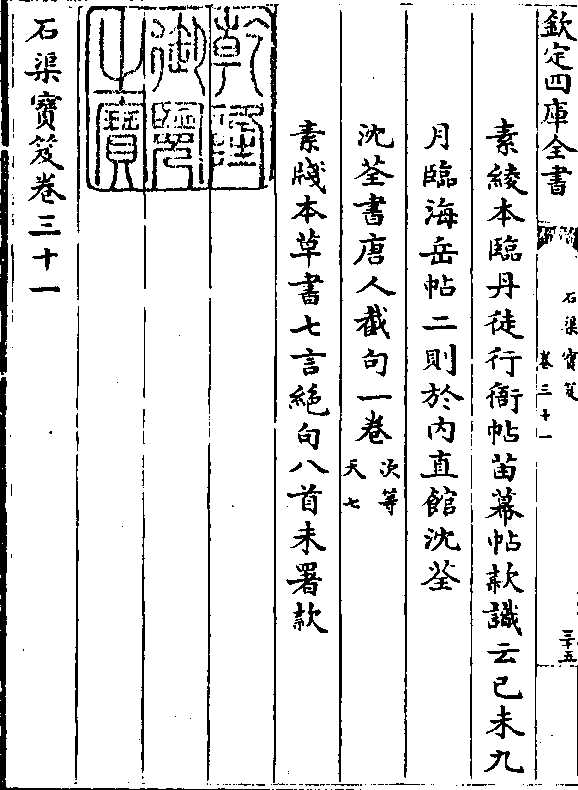 欽定四庫全書
石渠寶笈
卷三十一
三十五
素綾本臨丹徒行衙帖苗幕帖款識云已未九
月臨海岳帖二則於内直館沈荃
沈荃書唐人截句一卷
次等
天七
素牋本草書七言絶句八首未署款
乾隆御覽之寶
石渠寶笈卷三十一